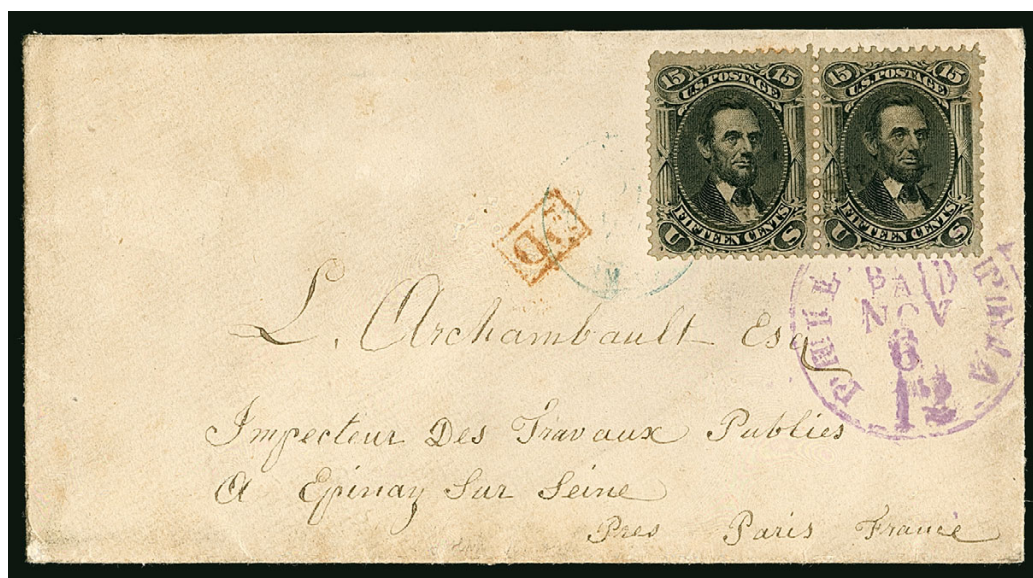 15 U.S. POSTAGE 15
FIFTEEN CENTS
U S
15 U.S. POSTAGE 15
FIFTEEN CENTS
U S
PD
PHIL'
PAID
NOV
6
12
L. Archambault Esq
Impecteur Des Travaux Publies
A Epinay Sur Seine
Pres Paris France